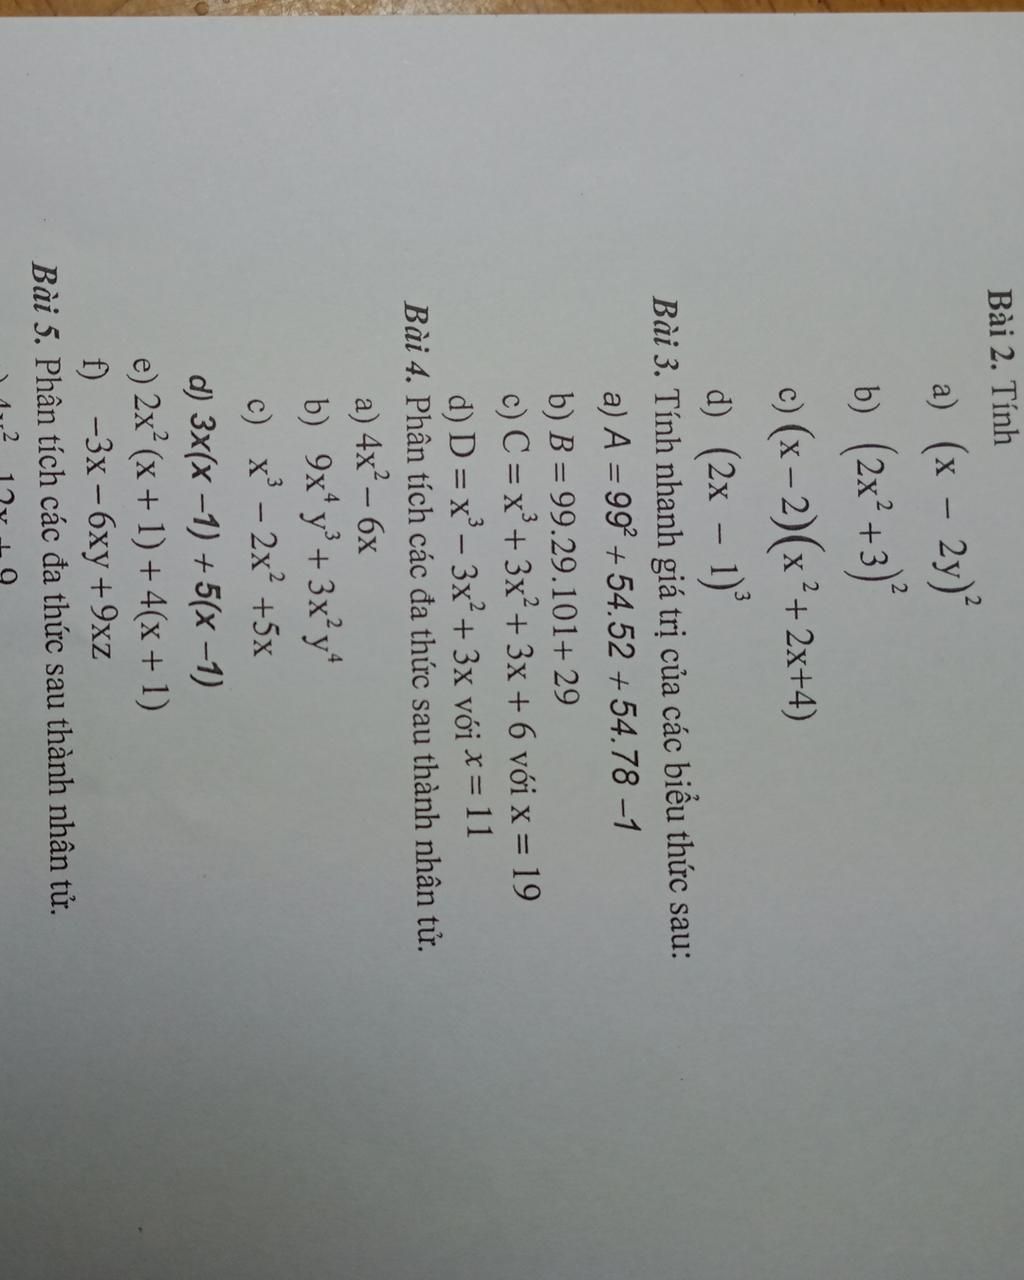 Bài 2. Tính
a) (x − 2y)²
b) (2x² + 3)²
c) (x − 2)(x² + 2x+4)
d) (2x − 1)³
Bài 3. Tính nhanh giá trị của các biểu thức sau:
a) A = 99² + 54.52 + 54.78 −1
b) B = 99.29.101+ 29
c) C = x³ + 3x² + 3x + 6 với x = 19
d) D = x³ − 3x² + 3x với x = 11
Bài 4. Phân tích các đa thức sau thành nhân tử.
a) 4x² − 6x
b) 9x⁴ y³ + 3x² y⁴
c) x³ − 2x² +5x
d) 3x(x −1) + 5(x −1)
e) 2x² (x + 1) + 4(x + 1)
f) −3x − 6xy + 9xz
Bài 5. Phân tích các đa thức sau thành nhân tử.